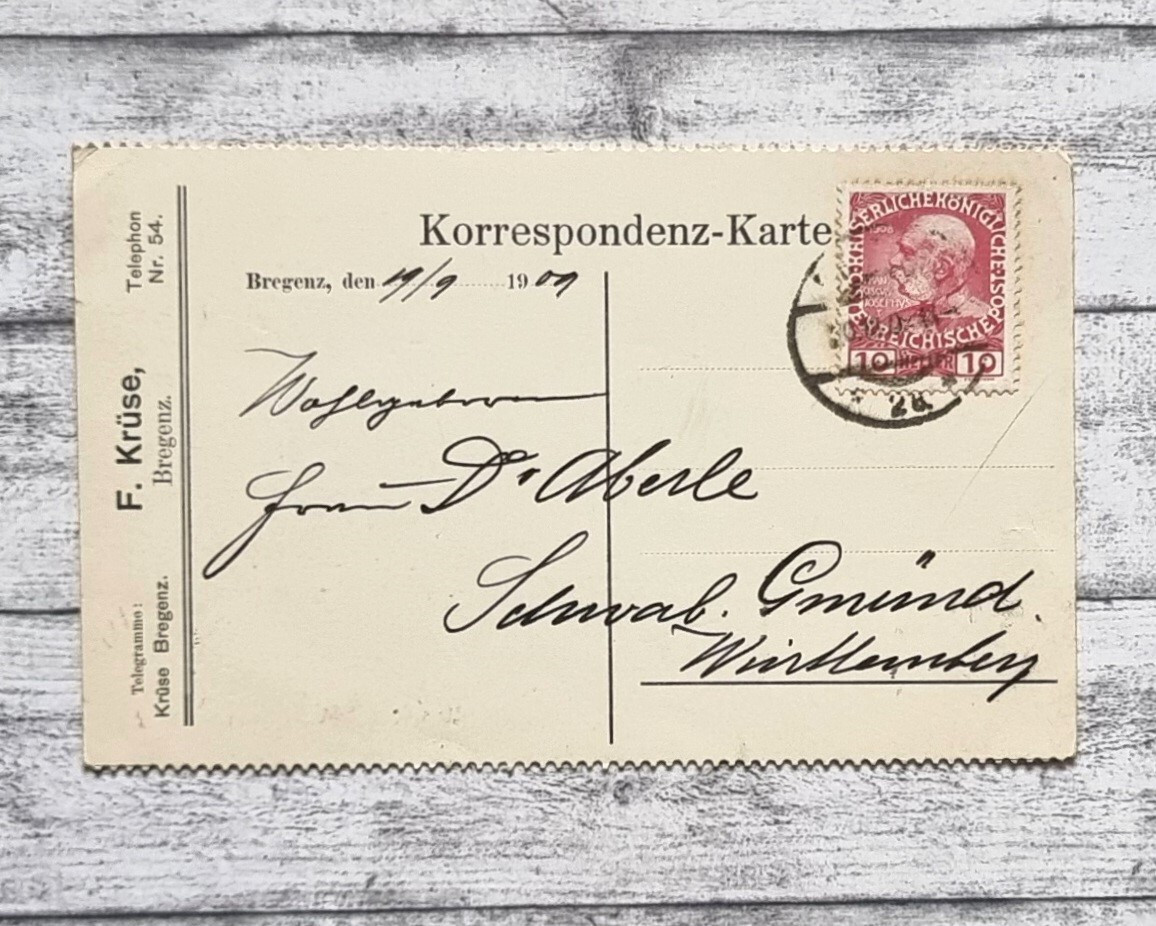 Telephon
Nr. 54.
F. Krüse,
Bregenz.
Telegramme:
Krüse Bregenz.
Korrespondenz-Karte
Bregenz, den 19/9 1909
Wohlgeboren
Frau Dr. Aberle
Schwäb. Gmünd.
Württemberg
KAISERLICHE KÖNIGLICHE
ÖSTERREICHISCHE POST
1908
10 HELLER 10
2a